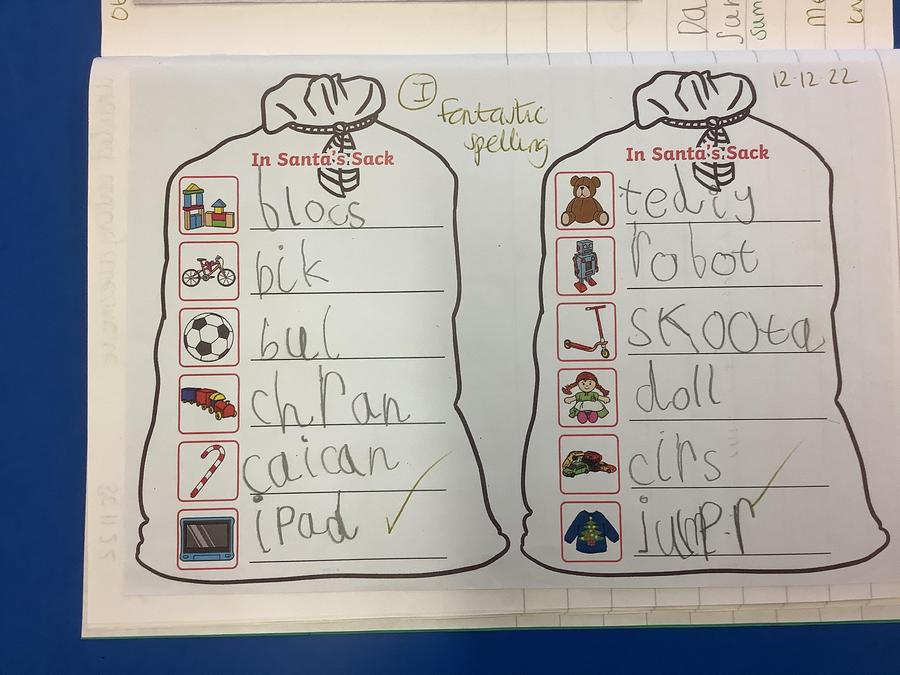 12.12.22
I
fantastic
spelling
In Santa's Sack
blocs
bik
bul
chran
caican
ipad
In Santa's Sack
teddy
robot
skoota
doll
cirs